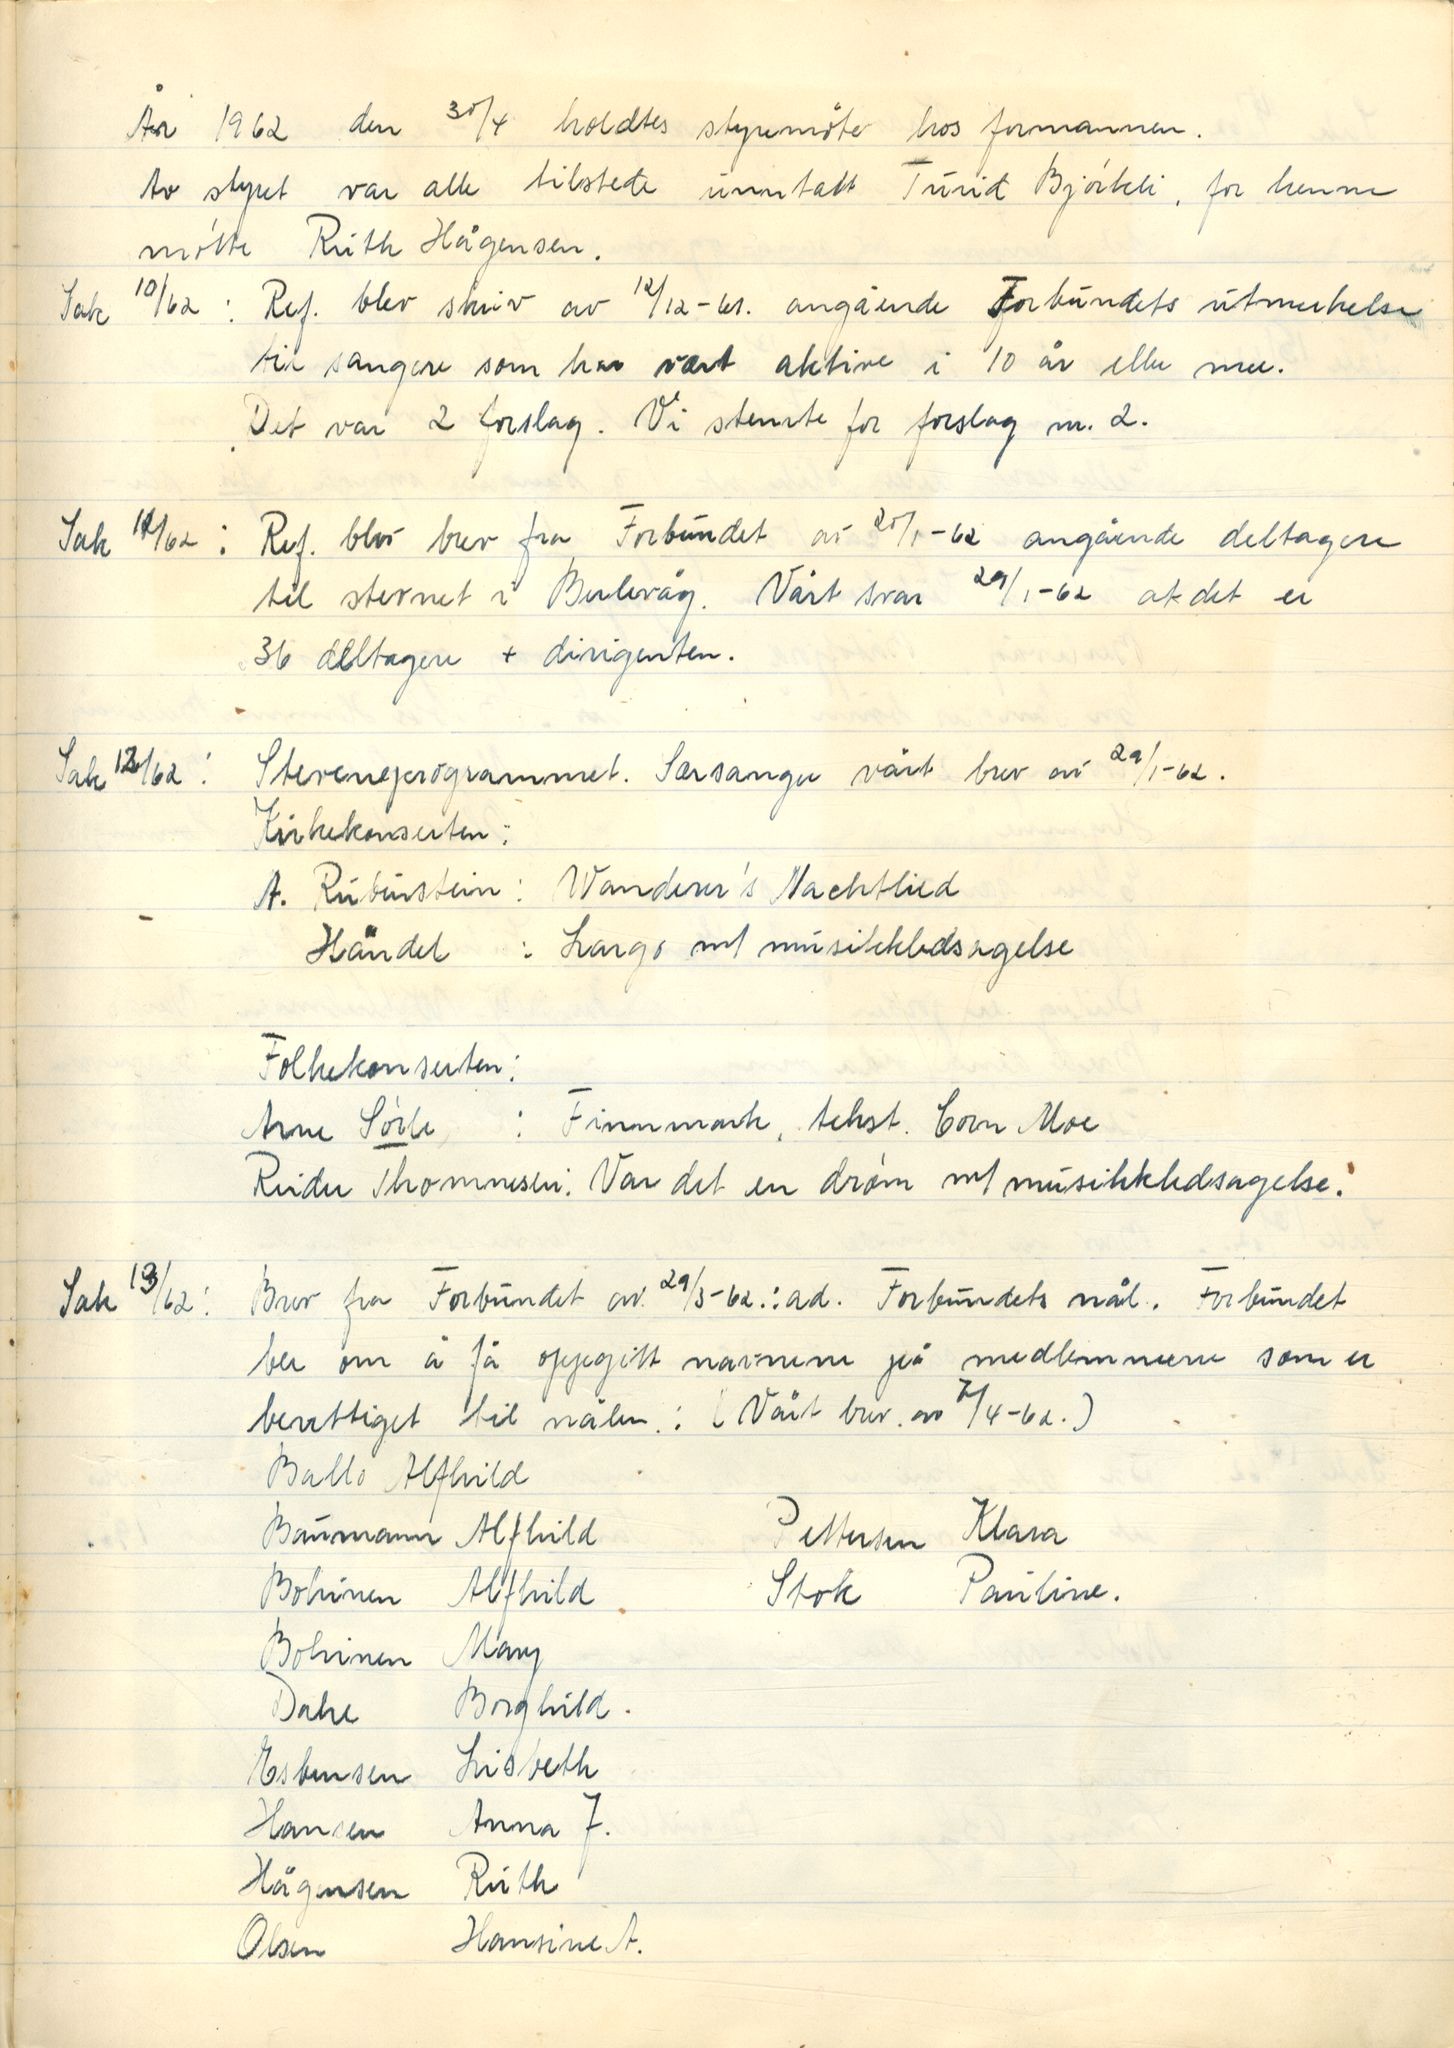 År 1962 den 30/4 holdtes styremöte hos formannen.
Av styret var alle tilstede unntatt Turid Björkli, for henne
mötte Ruth Hågensen.
Sak 10/62: Ref. blev skriv av 12/12-61. angående Forbundets utmerkelse
til sangere som har vært aktive i 10 år eller mer.
Det var 2 forslag. Vi stemte for forslag nr. 2.
Sak 11/62: Ref. blev brev fra Forbundet av 20/1-62 angående deltagere
til stevnet i Berlevåg. Vårt svar 29/1-62 at det er
36 deltagere + dirigenten.
Sak 12/62: Stevneprogrammet. Særsanger vårt brev av 29/1-62.
Kirkekonserten:
A. Rubinstein: Wanderer's Nachtlied
Händel : Largo m/ musikkledsagelse
Folkekonserten:
Arne Sörli : Finnmark, tekst. Corn Moe
Reidar Thommesen: Var det en dröm m/ musikkledsagelse.
Sak 13/62: Brev fra Forbundet av 29/3-62.: ad. Forbundets nål. Forbundet
ber om å få oppgitt navnene på medlemmene som er
berettiget til nålen.: (Vårt brev. av 7/4-62.)
Ballo Alfhild
Baumann Alfhild Pettersen Klara
Bohinen Alfhild Stok Pauline.
Bohinen Mary
Dahe Borghild.
Esbensen Lisbeth
Hansen Anna J.
Hågensen Ruth
Olsen Hansine A.